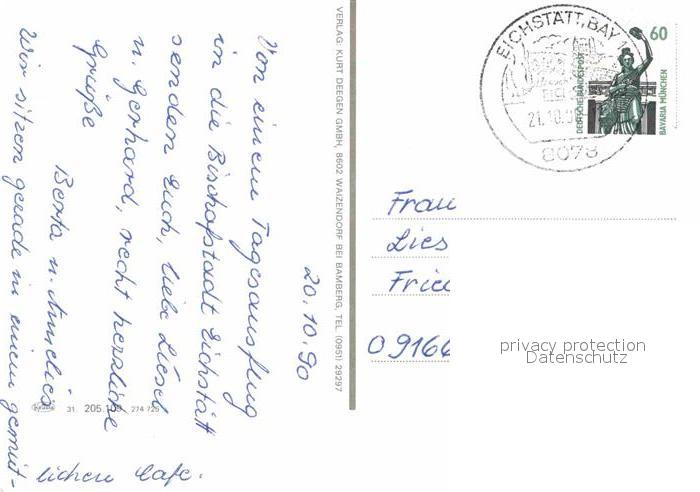 20.10.90
Von einem Tagesausflug
in die Bischofsstadt Eichstätt
senden Euch, liebe Liesel
u. Gerhard, recht herzliche
Grüße
Berta u. Annelies
Wir sitzen gerade in einem gemüt-
lichen Cafe.
VERLAG KURT DEEGEN GMBH, 8602 WAIZENDORF BEI BAMBERG, TEL (0951) 29297
31. 205.109 274 725
EICHSTÄTT, BAY
21.10.
8078
60
DEUTSCHE BUNDESPOST
BAVARIA MÜNCHEN
Frau
Lies
Frie
09166
privacy protection
Datenschutz